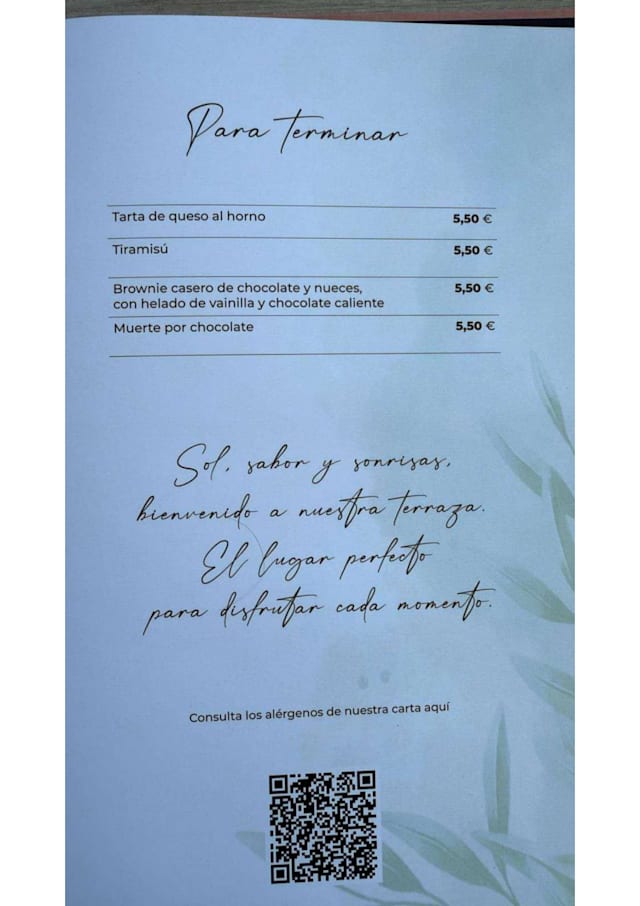 Para terminar
Tarta de queso al horno 5,50 €
Tiramisú 5,50 €
Brownie casero de chocolate y nueces, 5,50 €
con helado de vainilla y chocolate caliente
Muerte por chocolate 5,50 €
Sol, sabor y sonrisas,
bienvenido a nuestra terraza.
El lugar perfecto
para disfrutar cada momento.
Consulta los alérgenos de nuestra carta aquí